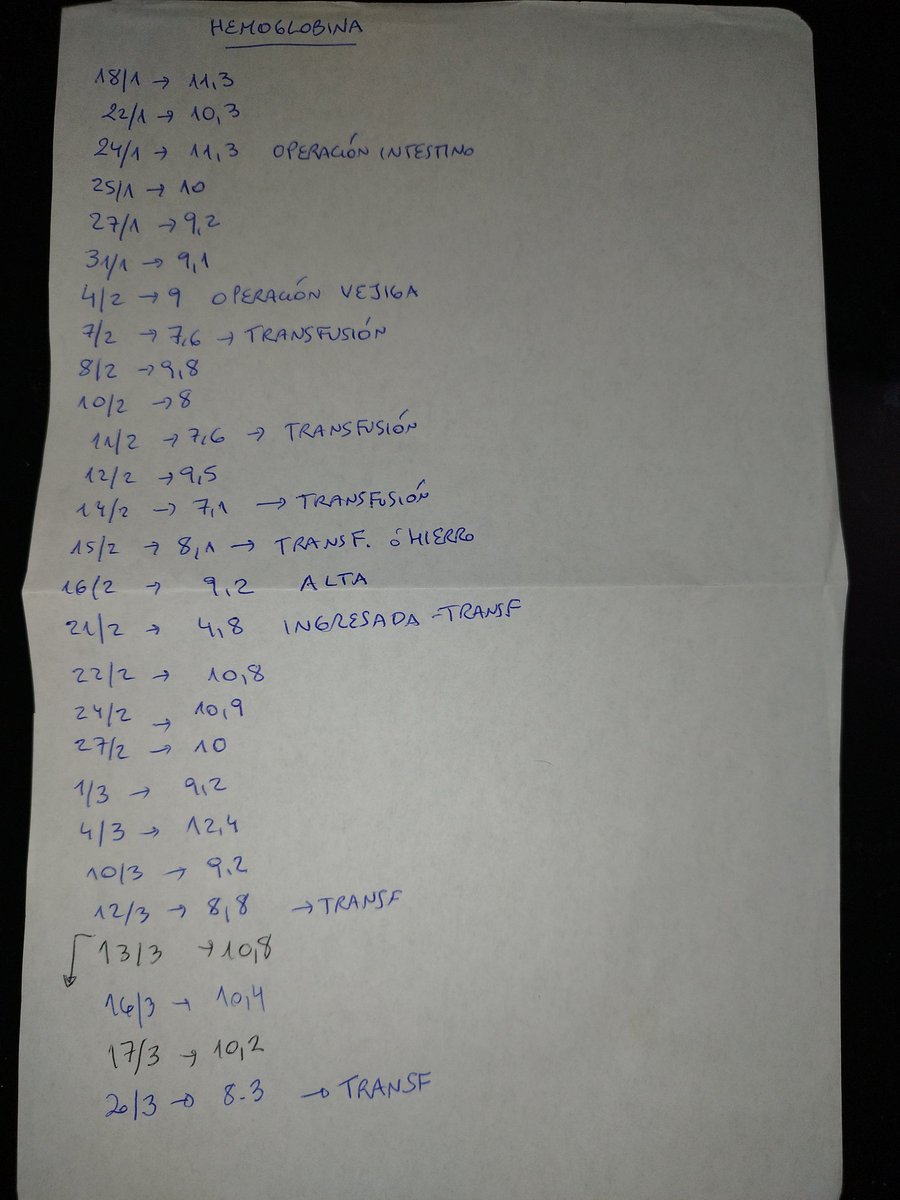 HEMOGLOBINA
18/1 → 11,3
22/1 → 10,3
24/1 → 11,3 OPERACIÓN INTESTINO
25/1 → 10
27/1 → 9,2
31/1 → 9,1
4/2 → 9 OPERACIÓN VEJIGA
7/2 → 7,6 → TRANSFUSIÓN
8/2 → 9,8
10/2 → 8
11/2 → 7,6 → TRANSFUSIÓN
12/2 → 9,5
14/2 → 7,1 → TRANSFUSIÓN
15/2 → 8,1 → TRANSF. ó HIERRO
16/2 → 9,2 ALTA
21/2 → 4,8 INGRESADA -TRANSF
22/2 → 10,8
24/2 → 10,9
27/2 → 10
1/3 → 9,2
4/3 → 12,4
10/3 → 9,2
12/3 → 8,8 → TRANSF
13/3 → 10,8
16/3 → 10,4
17/3 → 10,2
20/3 → 8.3 → TRANSF